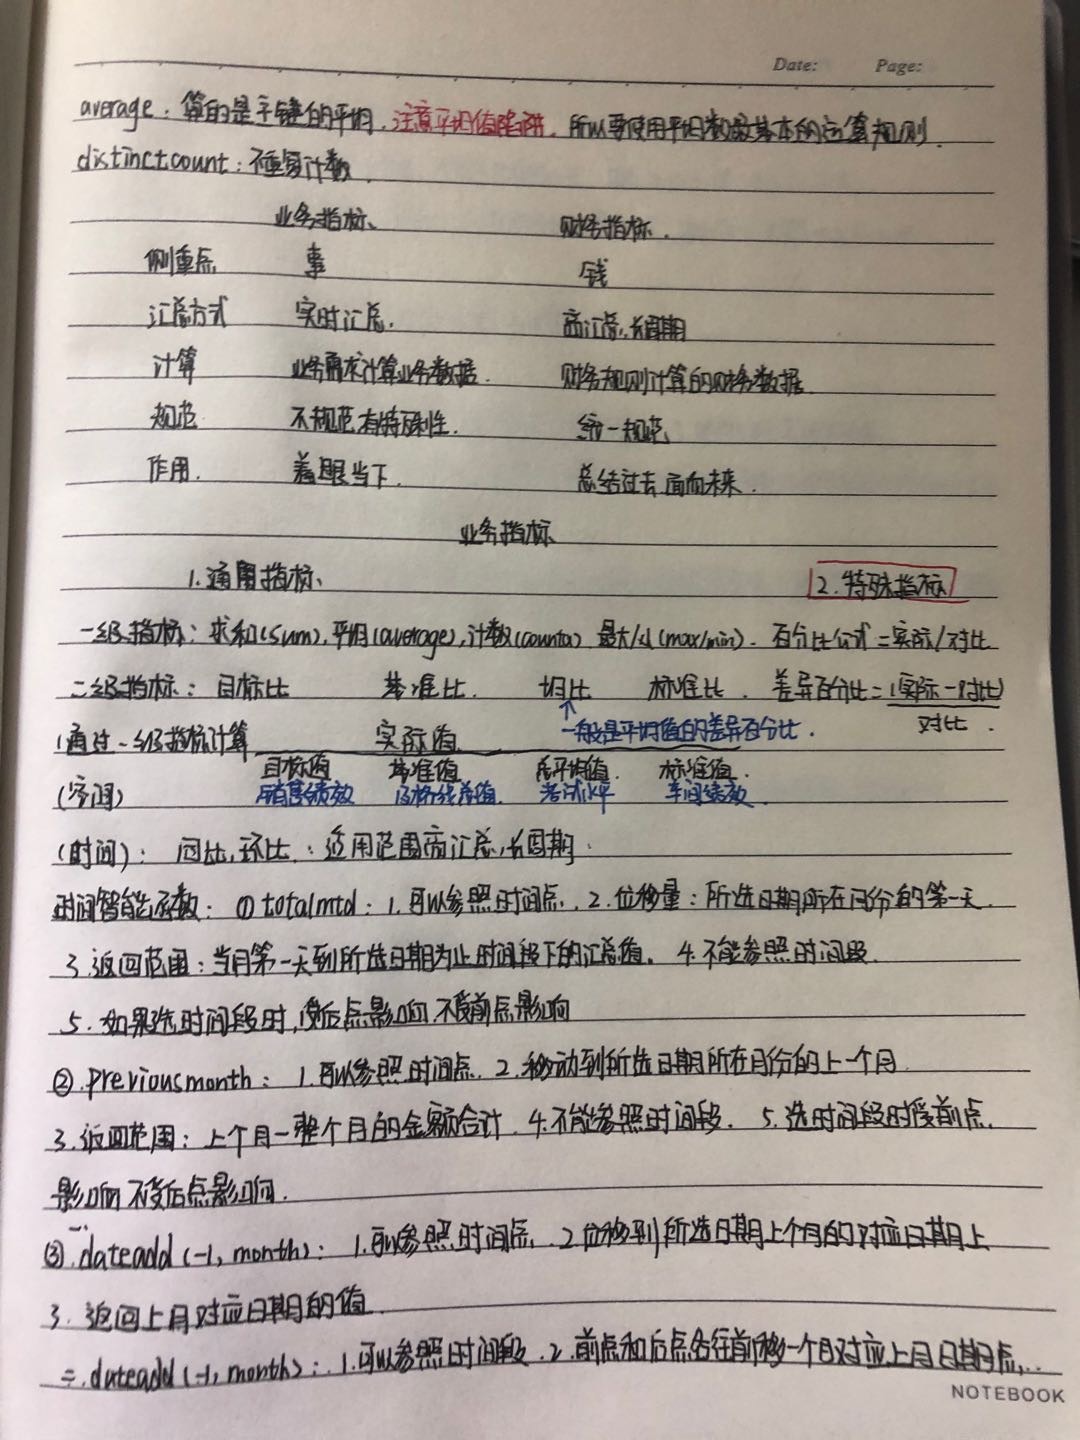 Date: Page:
average：算的是主键的平均，注意平均值陷阱，所以要使用平均数最基本的运算规则.
distinctcount：不重复计数.
业务指标、 财务指标.
侧重点 事 钱
汇总方式 实时汇总. 高汇总，长周期
计算 业务需求计算业务数据. 财务规则计算的财务数据.
规范 不规范，有特殊性. 统一规范
作用. 着眼当下. 总结过去 面向未来.
业务指标
1.通用指标、 2.特殊指标
一级指标：求和(sum), 平均(average), 计数(counta) 最大/小(max/min). 百分比公式=实际/对比
二级指标：目标比 基准比. 均比 标准比. 差异百分比=(实际-对比)
对比.
一般是平均值的差异百分比.
(通过一级指标计算 实际值
目标值 基准值 总平均值. 标准值.
(空间) 销售绩效 及格线差值. 考试水平 车间绩效
(时间)：同比，环比.：适用范围高汇总，长周期.
时间智能函数：①totalmtd：1.可以参照时间点. 2.位移量：所选日期所在月份的第一天.
3.返回范围：当月第一天到所选日期为止时间段下的汇总值. 4.不能参照时间段.
5.如果选时间段时，受后点影响 不受前点影响
②.previousmonth：1.可以参照时间点. 2.移动到所选日期所在月份的上一个月.
3.返回范围：上个月一整个月的金额合计. 4.不能参照时间段. 5.选时间段时受前点.
影响 不受后点影响.
③.dateadd(-1, month)：1.可以参照时间点. 2.位移到所选日期上个月的对应日期上
3.返回上月对应日期的值.
二.dateadd(-1, month)：1.可以参照时间段. 2.前点和后点各往前移一个月对应上月日期点...
NOTEBOOK